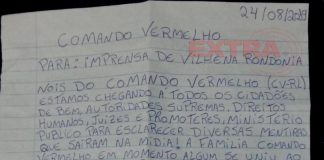 24/08/2019
COMANDO VERMELHO
EXTRA
PARA: IMPRENSA DE VILHENA RONDONIA
NOIS DO COMANDO VERMELHO (CV-RL)
ESTAMOS CHEGANDO A TODOS OS CIDADÕES
DE BEM, AUTORIDADES SUPREMAS, DIREITOS
HUMANOS, JUIZES E PROMOTERES, MINISTERIO
PUBLICO PARA ESCLARECER DIVERSAS MENTIRAS
QUE SAIRAM NA MIDIA! A FAMILIA COMANDO
VERMELHO EM MOMENTO ALGUM SE UNIU AO